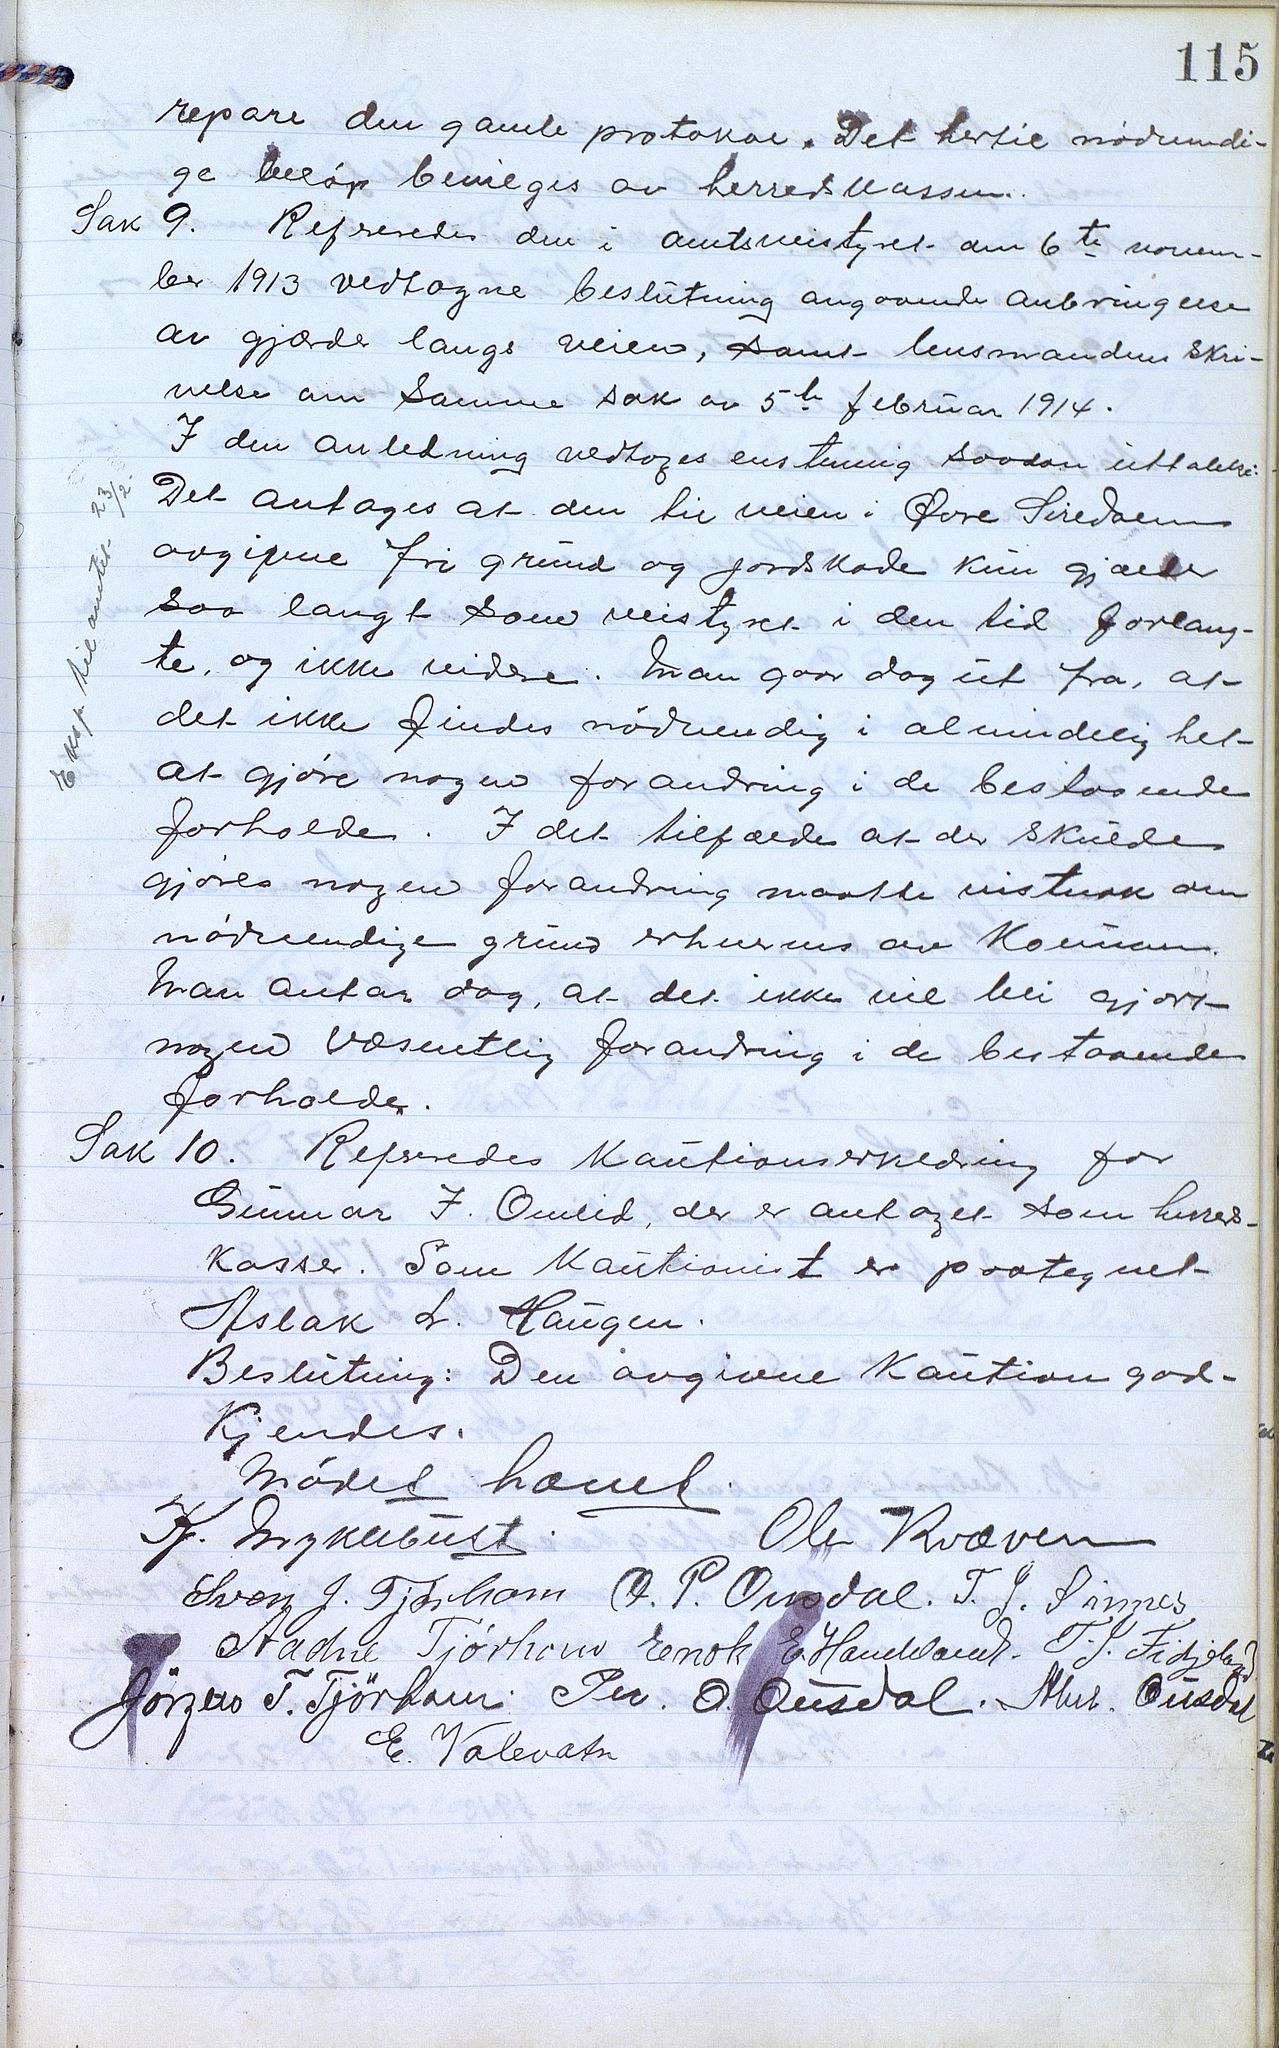 115
repare den gamle protokol. Det hertil nödvendi-
ge belöp bevilges av herredskassen.
Sak 9. Refereredes den i amtsveistyret den 6te novem-
ber 1913 vedtagne beslutning angaaende anbringelse
av gjærder langs veien, samt lensmandens skri-
velse om samme sak av 5te februar 1914.
I den anledning vedtoges enstemmig saadan uttalelse:
Det antages at den til veien i Øvre Siredalen
avgivne fri grund og jordskade kun gjælder
saa langt som veistyret i den tid forlang-
te, og ikke videre. Man gaar dog ut fra, at
det ikke findes nödvendig i almindelighet
at gjöre nogen forandring i de bestaaende
forholde. I det tilfælde at der skulde
gjöres nogen forandring maatte vistnok den
nödvendige grund erhverves av Komunen.
Man antar dog, at det ikke vil bli gjort
nogen væsentlig forandring i de bestaaende
forholde.
Eksp. til amtet 23/2
Sak 10. Refereredes Kautionserklæring for
Gunnar I. Omlid, der er antaget som herreds-
kasser. Som Kautionist er paategnet
Aslak L. Haugen.
Beslutning: Den avgivne Kaution god-
kjendes.
Mödet hævet.
Kr. Myklebust. Ole Kvæven
Sven J. Tjörhom O. P. Ousdal. T. J. Sinnes
Aadne Tjörhom Enok E. Haukland. T. J. Fidjeland
Jörgen T. Tjörhom. Per. O. Ousdal. Abr. Ousdal
E. Valevatn